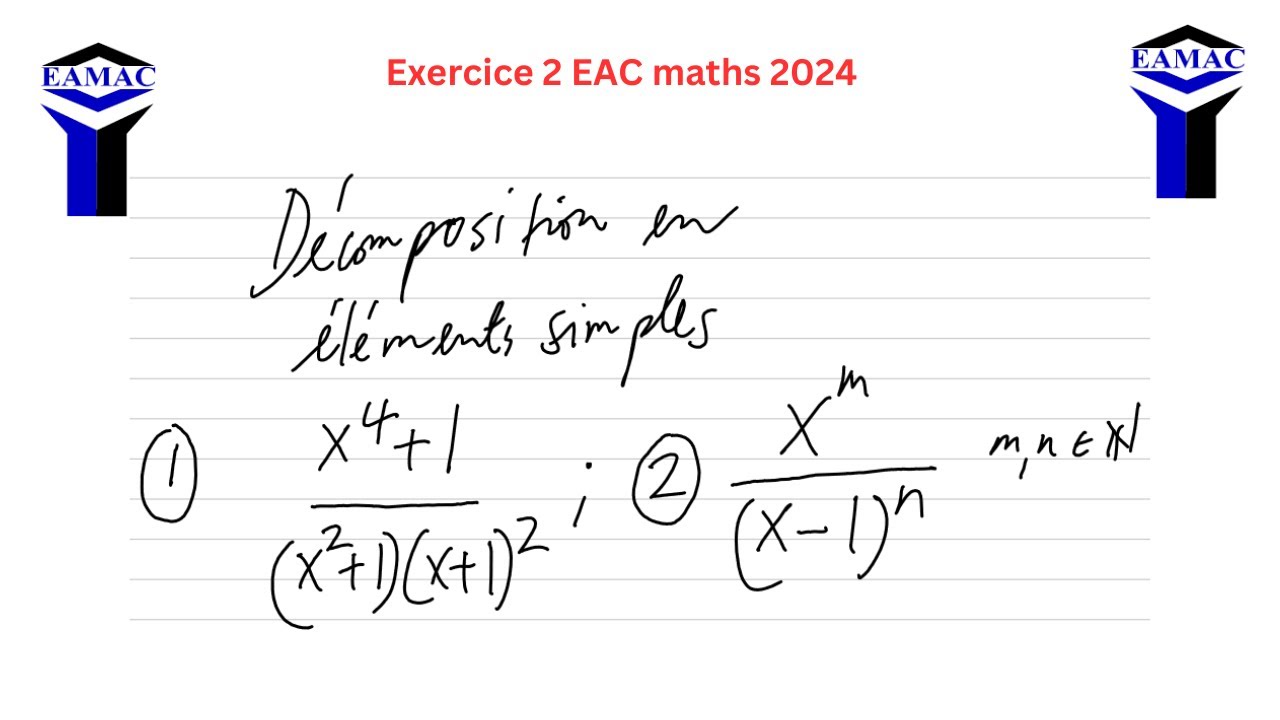 EAMAC
Exercice 2 EAC maths 2024
EAMAC
Décomposition en
éléments simples
① x^4+1 / (x^2+1)(x+1)^2 ; ② X^m / (X-1)^n m,n ∈ ℕ